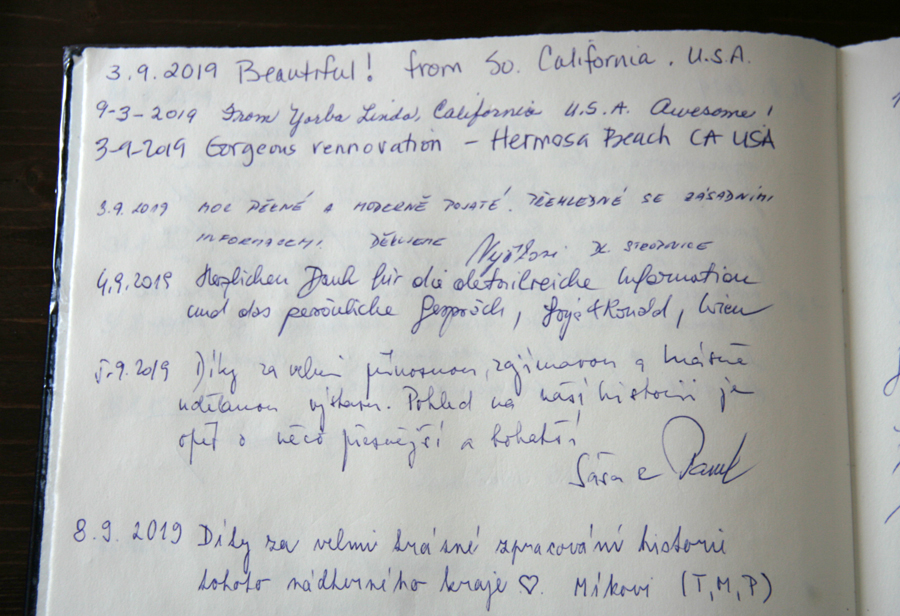 3.9.2019 Beautiful! from So. California. U.S.A.
9-3-2019 From Yorba Linda, California U.S.A. Awesome!
3-9-2019 Gorgeous rennovation - Hermosa Beach CA USA
3.9.2019 MOC PĚKNÉ A MODERNĚ POJATÉ. PŘEHLEDNÉ SE ZÁSADNÍMI
INFORMACEMI. DĚKUJEME
4.9.2019 Herzlichen Dank für die detailreiche Information
und das persönliche Gespräch, Ronald, Wien
5.9.2019 Díky za velmi přínosnou, zajímavou a krásně
udělanou výstavu. Pohled na naši historii je
opět o něco přesnější a bohatší
Sáša a Pavel
8.9.2019 Díky za velmi krásné zpracování historie
tohoto nádherného kraje ♡. Míkovi (T,M,P)